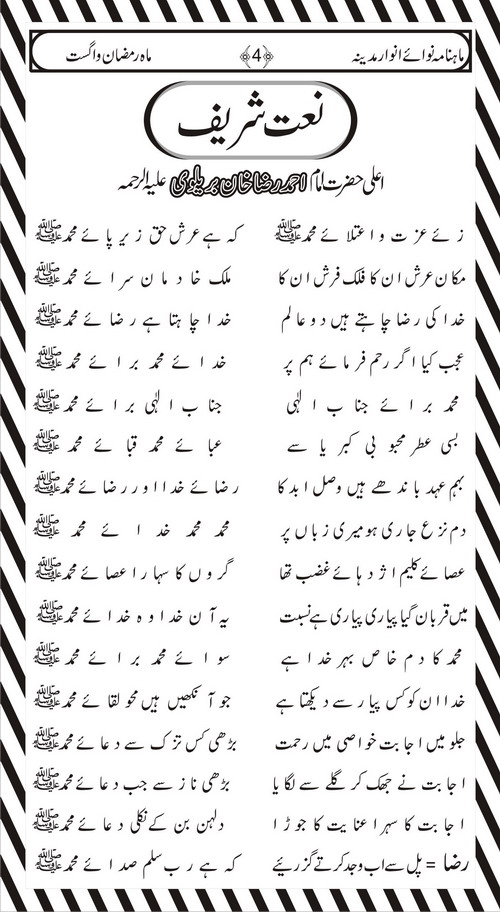 ماہنامہ نوائے انوار مدینہ ﴿4﴾ ماہ رمضان و اگست
نعت شریف
اعلی حضرت امام احمد رضا خان بریلوی علیہ الرحمہ
زہے عزت و اعتلائے محمد ﷺ کہ ہے عرش حق زیر پائے محمد ﷺ
مکان عرش ان کا فلک فرش ان کا ملک خادمان سرائے محمد ﷺ
خدا کی رضا چاہتے ہیں دو عالم خدا چاہتا ہے رضائے محمد ﷺ
عجب کیا اگر رحم فرمائے ہم پر خدائے محمد برائے محمد ﷺ
محمد برائے جناب الٰہی جناب الٰہی برائے محمد ﷺ
بسی عطر محبوبی کبریا سے عبائے محمد قبائے محمد ﷺ
بہم عہد باندھے ہیں وصل ابد کا رضائے خدا اور رضائے محمد ﷺ
دم نزع جاری ہو میری زباں پر محمد محمد خدائے محمد ﷺ
عصائے کلیم اژدہائے غضب تھا گروں کا سہارا عصائے محمد ﷺ
میں قربان گیا پیاری پیاری ہے نسبت یہ آن خدا وہ خدائے محمد ﷺ
محمد کا دم خاص بہر خدا ہے سوائے محمد برائے محمد ﷺ
خدا ان کو کس پیار سے دیکھتا ہے جو آنکھیں ہیں محو لقائے محمد ﷺ
جلو میں اجابت خواصی میں رحمت بڑھی کس تزک سے دعائے محمد ﷺ
اجابت نے جھک کر گلے سے لگایا بڑھی ناز سے جب دعائے محمد ﷺ
اجابت کا سہرا عنایت کا جوڑا دلہن بن کے نکلی دعائے محمد ﷺ
رضا = پل سے اب وجد کرتے گزریئے کہ ہے رب سلم صدائے محمد ﷺ